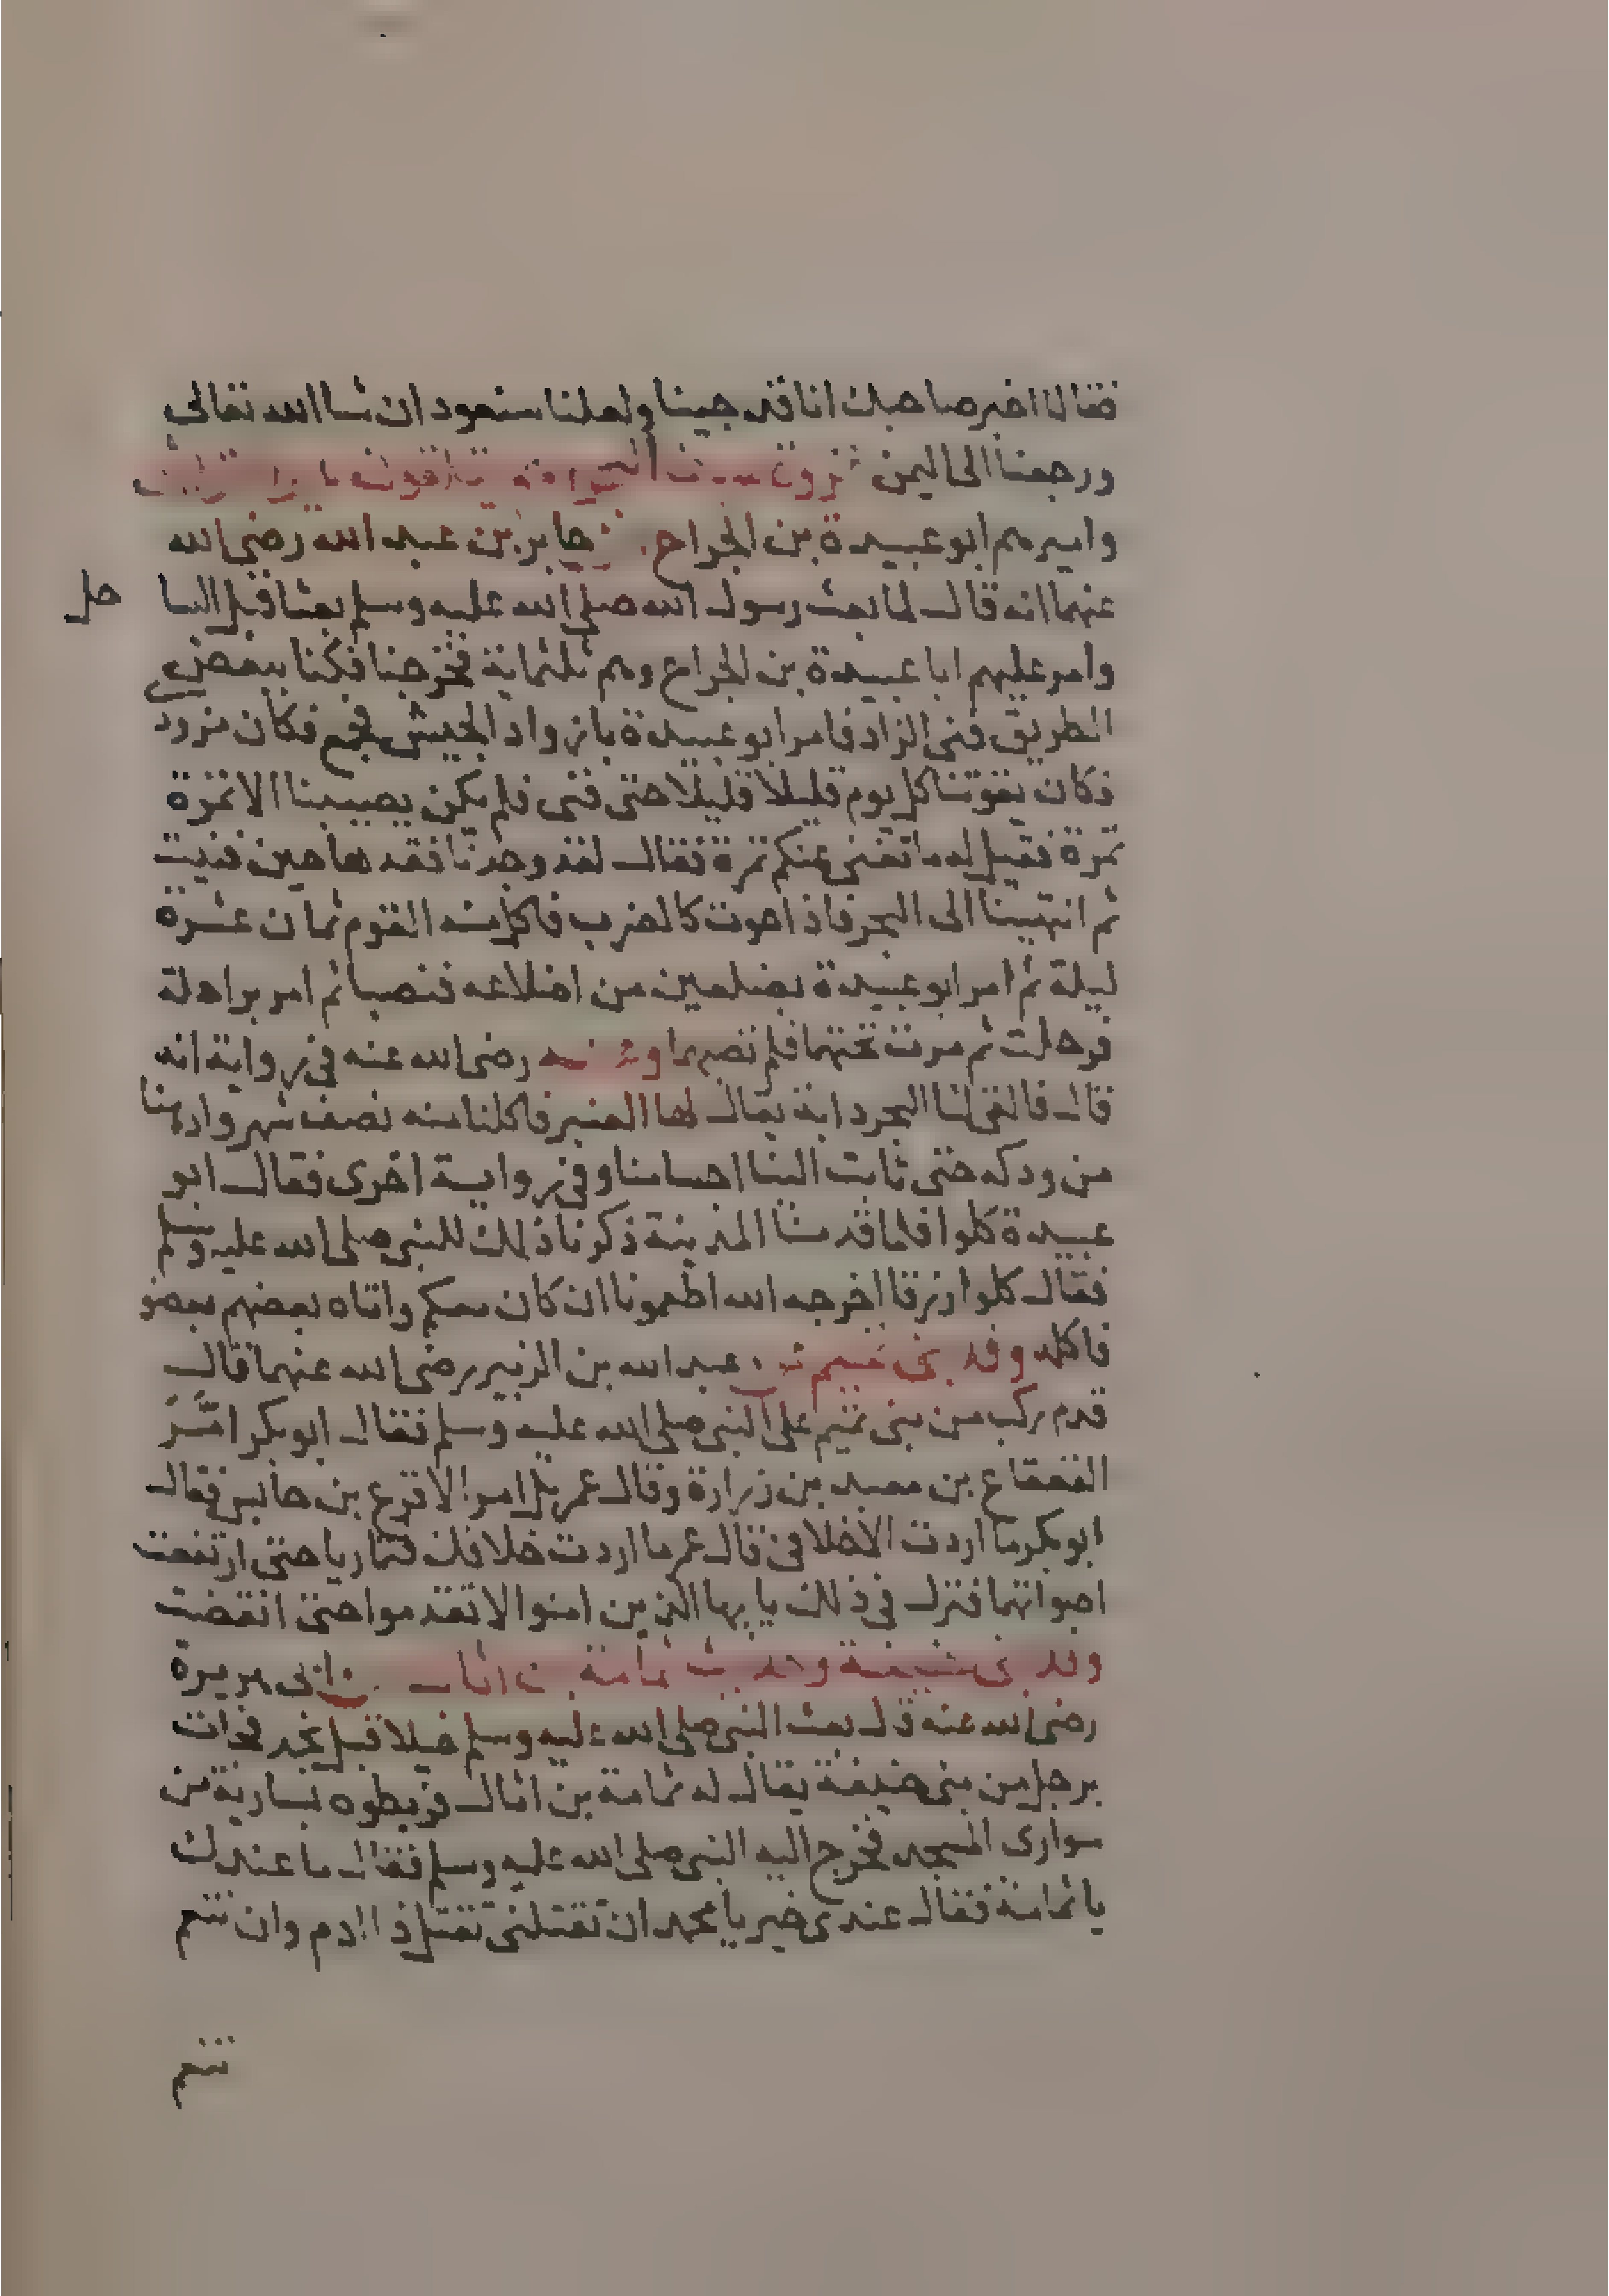 فقالا اخبر صاحبك انا قد جينا ولعلنا سنعود ان شا الله تعالى
ورجعنا الى اليمن غزوة سيف البحر وهم يتلقون عيرا لقريش
واميرهم ابو عبيدة بن الجراح عن جابر بن عبد الله رضى الله
عنهما انه قال لما بعث رسول الله صلى الله عليه وسلم بعثا قبل السا
حل
وامر عليهم ابا عبيدة بن الجراح وهم ثلثماية فخرجنا فكنا ببعض
الطريق فنى الزاد فامر ابو عبيدة بازواد الجيش فجمع فكان مزود
فكان يقوتنا كل يوم قليلا قليلا حتى فنى فلم يكن يصيبنا الا تمرة
تمرة فقيل له ما تغنى عنكم تمرة فقال لقد وجدنا فقدها حين فنيت
ثم انتهينا الى البحر فاذا حوت كالضرب فاكل منه القوم ثمان عشرة
ليلة ثم امر ابو عبيدة بضلعين من اضلاعه فنصبا ثم امر براحلة
فرحلت ثم مرت تحتهما فلم تصبهما وعنه رضى الله عنه فى رواية انه
قال فالقى لنا البحر دابة يقال لها العنبر فاكلنا منه نصف شهر وادهنا
من ودكه حتى ثابت الينا اجسامنا وفى رواية اخرى فقال ابو
عبيدة كلوا فلما قدمنا المدينة ذكرنا ذلك للنبى صلى الله عليه وسلم
فقال كلوا رزقا اخرجه الله اطعمونا ان كان معكم واتاه بعضهم بعضو
فاكله وفد بنى تميم عن عبد الله بن الزبير رضى الله عنهما قال
قدم ركب من بنى تميم على النبى صلى الله عليه وسلم فقال ابو بكر امر
القعقاع بن معبد بن زرارة وقال عمر بل امر الاقرع بن حابس فقال
ابو بكر ما اردت الا خلافى قال عمر ما اردت خلافك فتماريا حتى ارتفعت
اصواتهما فنزل فى ذلك يا يها الذين امنوا لا تقدموا حتى انقضت
وفد بنى حنيفة وحديث ثمامة بن اثال عن ابى هريرة
رضى الله عنه قال بعث النبى صلى الله عليه وسلم خيلا قبل نجد فجات
برجل من بنى حنيفة يقال له ثمامة بن اثال فربطوه بسارية من
سوارى المسجد فخرج اليه النبى صلى الله عليه وسلم فقال ما عندك
يا ثمامة فقال عندى خير يا محمد ان تقتلنى تقتل ذا دم وان تنعم
تنعم